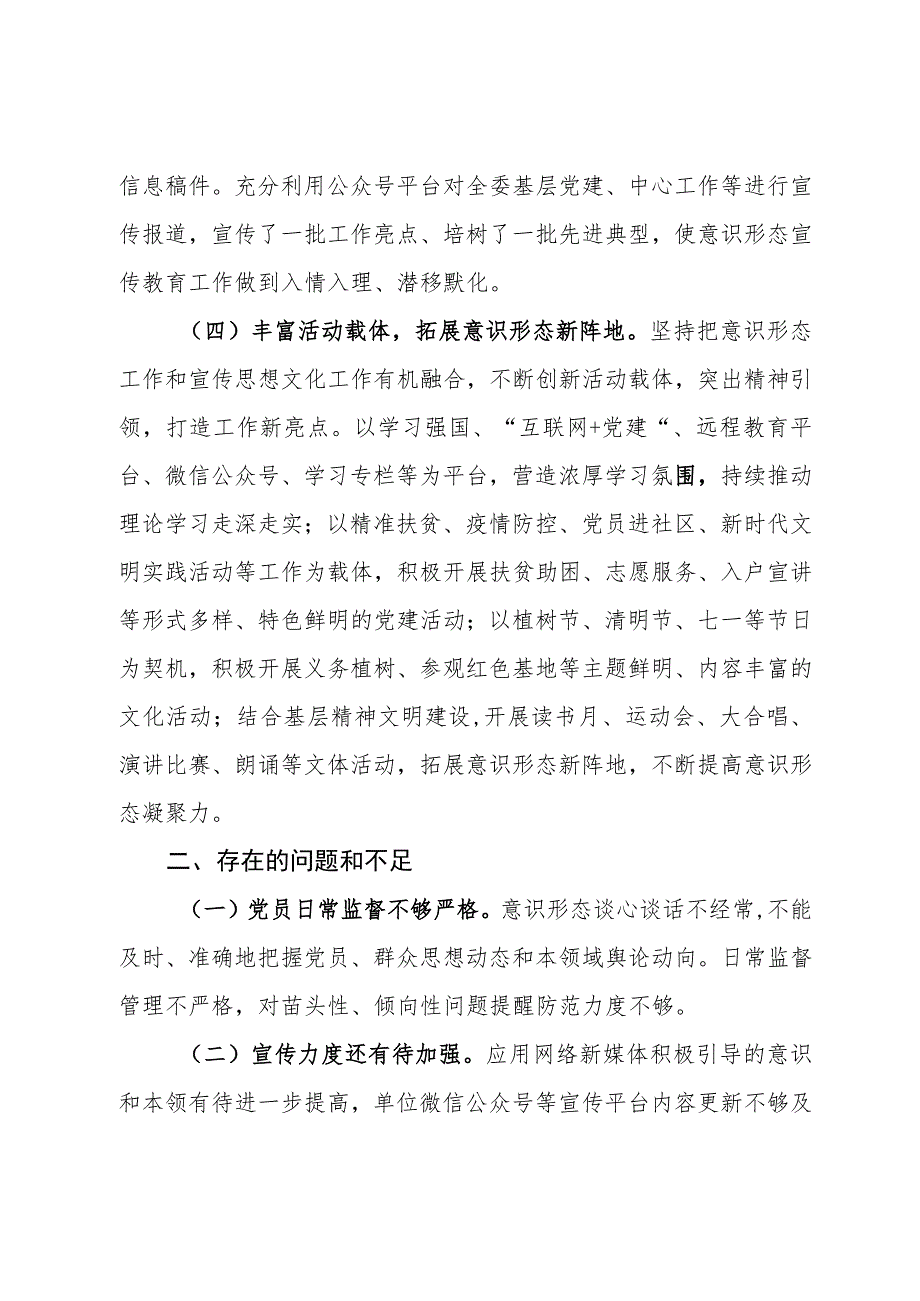 信息稿件。充分利用公众号平台对全委基层党建、中心工作等进行宣
传报道，宣传了一批工作亮点、培树了一批先进典型，使意识形态宣
传教育工作做到入情入理、潜移默化。
（四）丰富活动载体，拓展意识形态新阵地。坚持把意识形态
工作和宣传思想文化工作有机融合，不断创新活动载体，突出精神引
领，打造工作新亮点。以学习强国、“互联网+党建“、远程教育平
台、微信公众号、学习专栏等为平台，营造浓厚学习氛围，持续推动
理论学习走深走实；以精准扶贫、疫情防控、党员进社区、新时代文
明实践活动等工作为载体，积极开展扶贫助困、志愿服务、入户宣讲
等形式多样、特色鲜明的党建活动；以植树节、清明节、七一等节日
为契机，积极开展义务植树、参观红色基地等主题鲜明、内容丰富的
文化活动；结合基层精神文明建设,开展读书月、运动会、大合唱、
演讲比赛、朗诵等文体活动，拓展意识形态新阵地，不断提高意识形
态凝聚力。
二、存在的问题和不足
（一）党员日常监督不够严格。意识形态谈心谈话不经常,不能
及时、准确地把握党员、群众思想动态和本领域舆论动向。日常监督
管理不严格，对苗头性、倾向性问题提醒防范力度不够。
（二）宣传力度还有待加强。应用网络新媒体积极引导的意识
和本领有待进一步提高，单位微信公众号等宣传平台内容更新不够及